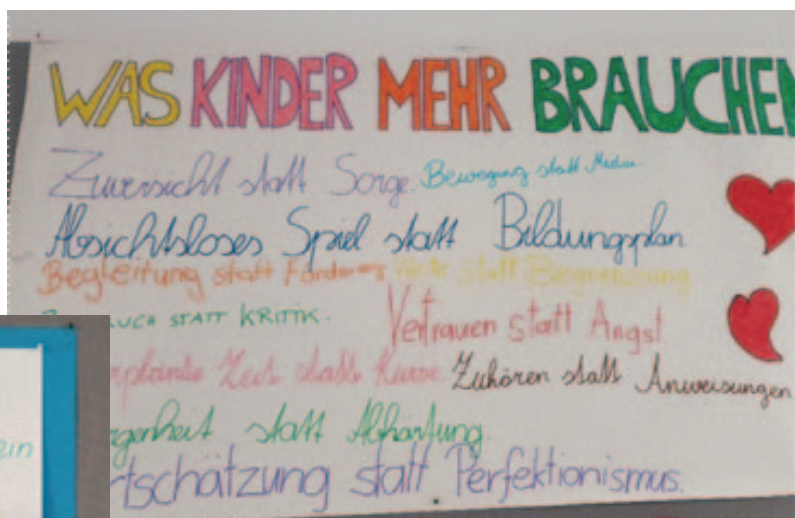 WAS KINDER MEHR BRAUCHEN
Zuversicht statt Sorge. Bewegung statt Medien
Absichtsloses Spiel statt Bildungsplan
Begleitung statt Förderung statt Begrenzung
STATT KRITIK. Vertrauen statt Angst
Zeit statt Kurse. Zuhören statt Anweisungen
rgenheit statt Abhärtung.
rtschätzung statt Perfektionismus.